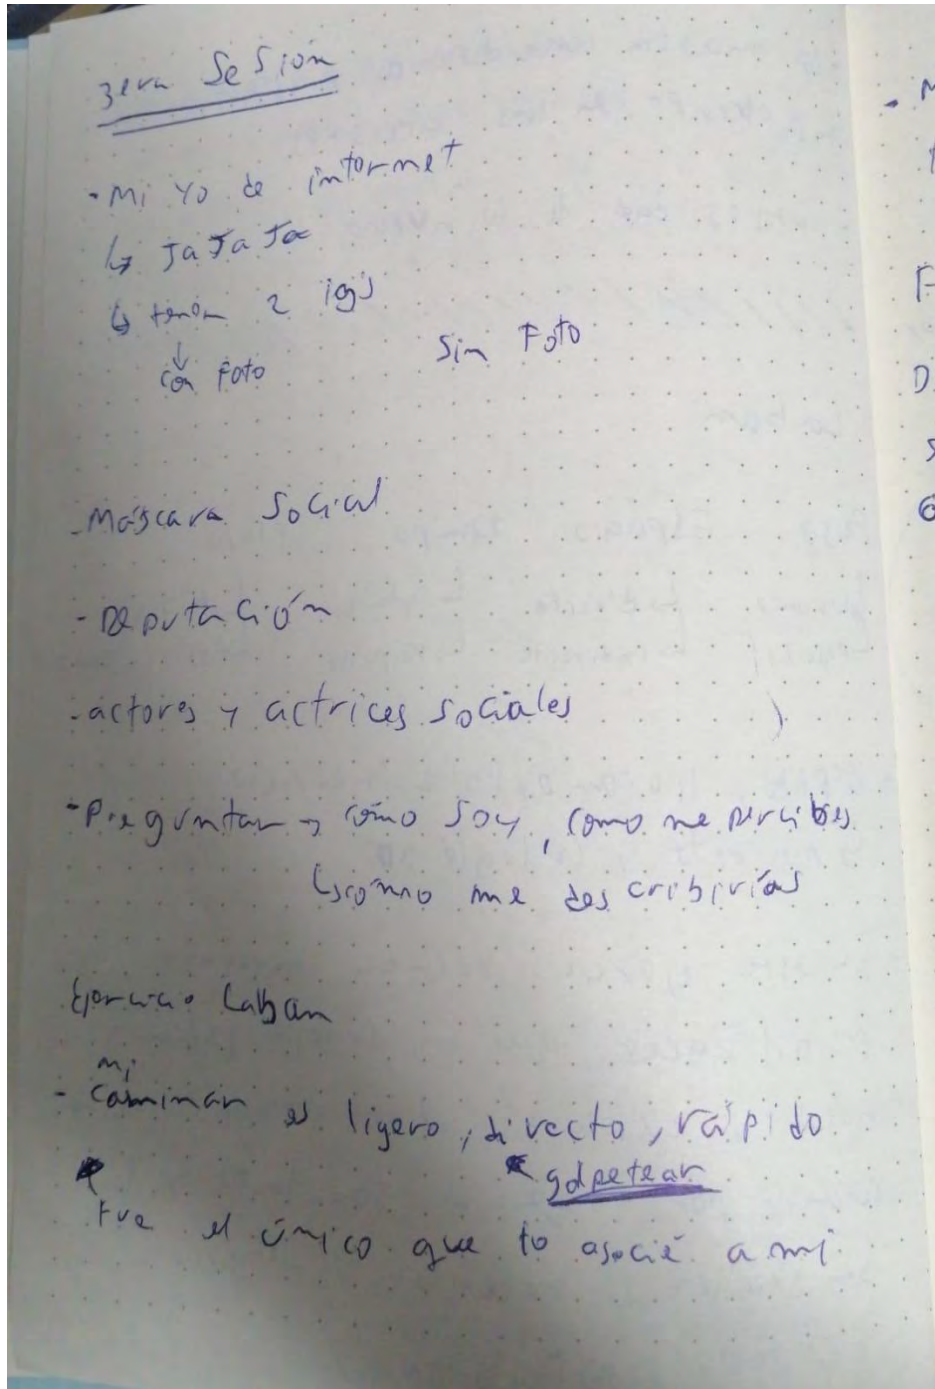 3era Sesión
- Mi yo de internet
↳ JaJaJa
↳ tenía 2 igs
↓
con Foto
Sin Foto
- Máscara Social
- Reputación
- actores y actrices sociales
- Preguntar → cómo soy, como me percibes
↳ cómo me describirías
Ejercicio Laban
mi
- caminar es ligero, directo, rápido
golpetear
Fue el único que to asocié a mi